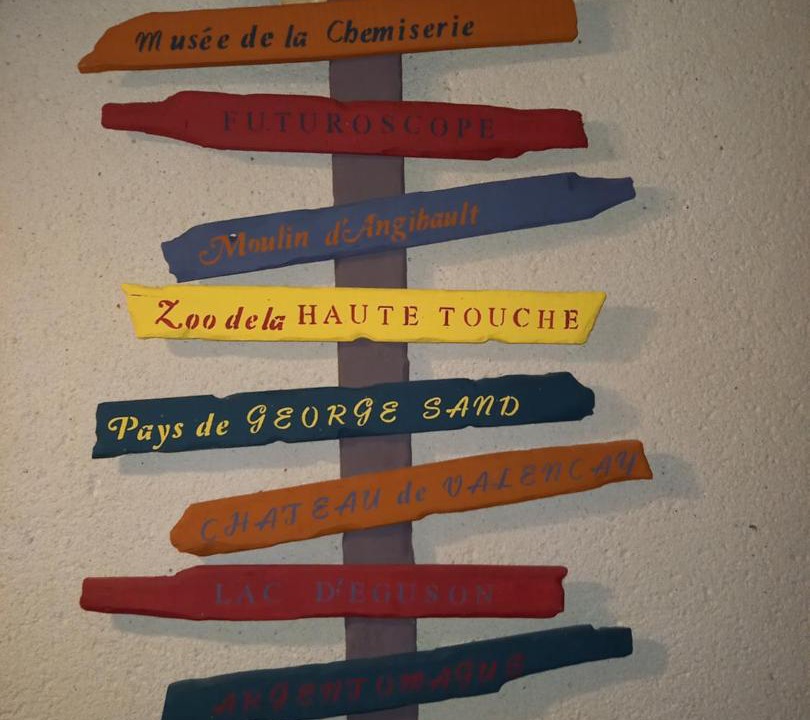 Musée de la Chemiserie
FUTUROSCOPE
Moulin d'Angibault
Zoo de la HAUTE TOUCHE
Pays de GEORGE SAND
CHATEAU de VALENCAY
LAC D'EGUSON
ARGENTOMAGUS